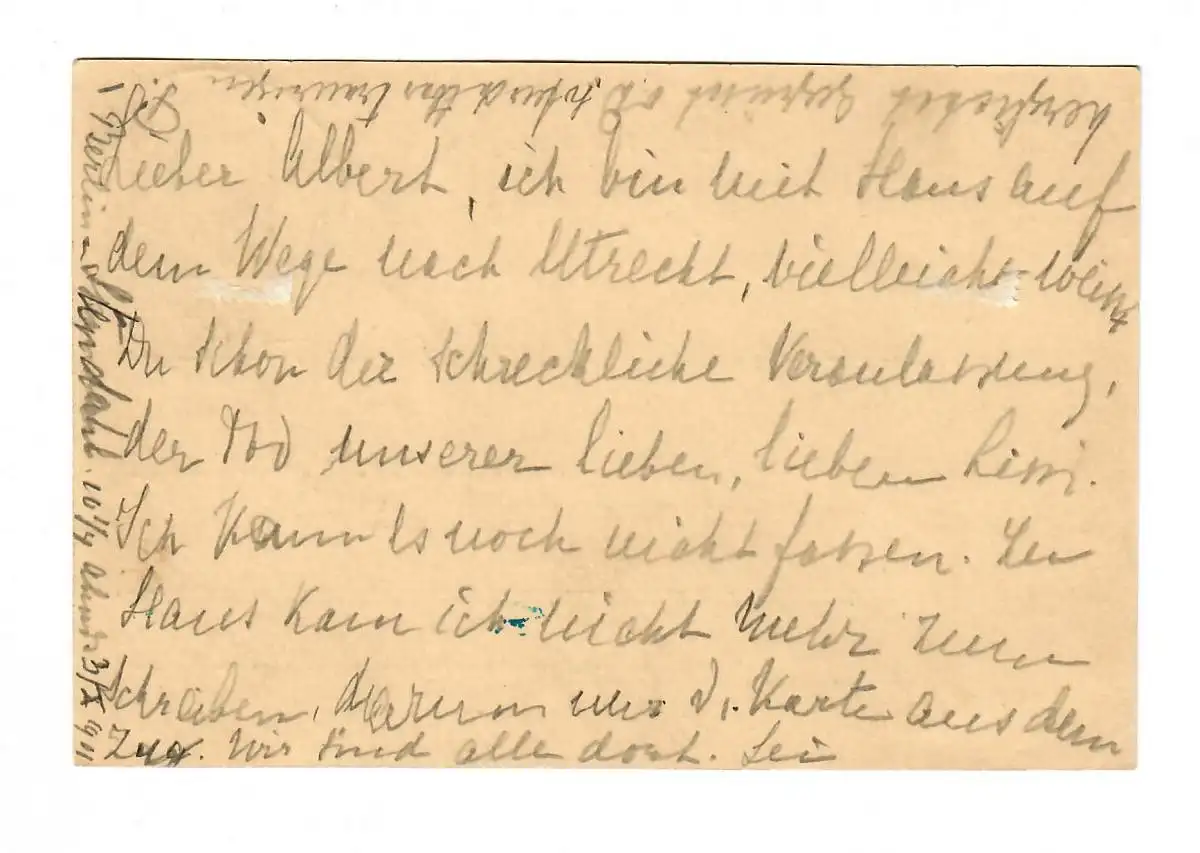 Lieber Albert, ich bin mit Hans auf
dem Wege nach Utrecht, vielleicht weisst
Du schon die schreckliche Veranlassung,
der Tod unserer lieben, lieben Lissi.
Ich kann es noch nicht fassen. Zu
Haus kam ich nicht mehr zum
Schreiben, darum nur d. Karte aus dem
Zug. Wir sind alle dort. Sei
herzlichst gegrüsst v. D. traurigen
Berlin